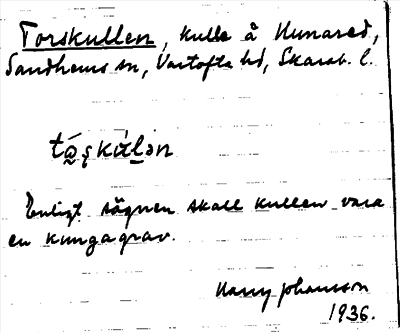 Torskullen, kulle å Kunared,
Sandhems sn, Vartofta hd, Skarab. l.
Enligt sägnen skall kullen vara
en kungagrav.
Harry Johansson
1936.